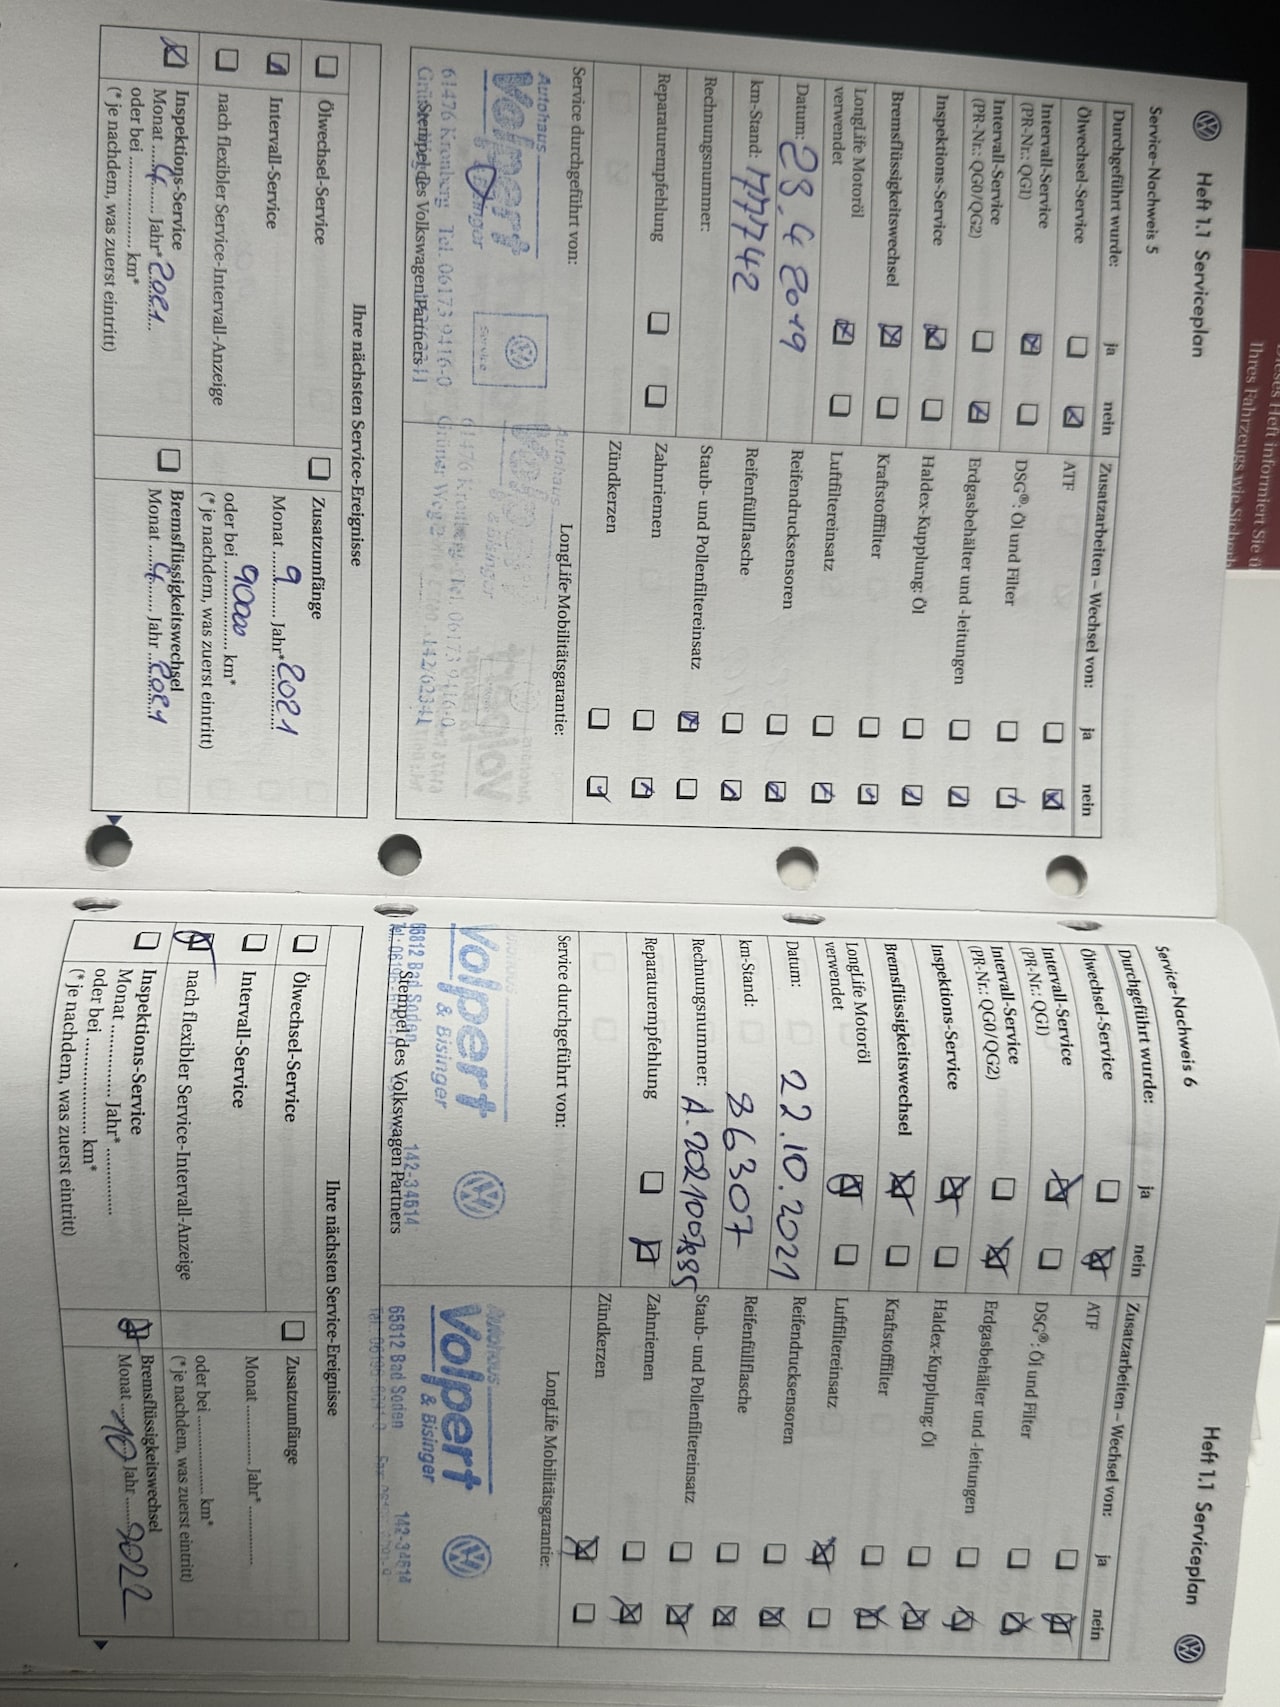 Heft 1.1 Serviceplan
Service-Nachweis 5
Durchgeführt wurde: ja nein
Ölwechsel-Service
Intervall-Service
(PR-Nr.: QG1)
Intervall-Service
(PR-Nr.: QG0/QG2)
Inspektions-Service
Bremsflüssigkeitswechsel
LongLife Motoröl
verwendet
Datum: 23.4 2019
km-Stand: 77742
Rechnungsnummer:
Reparaturempfehlung
Zusatzarbeiten – Wechsel von: ja nein
ATF
DSG®: Öl und Filter
Erdgasbehälter und -leitungen
Haldex-Kupplung: Öl
Kraftstofffilter
Luftfiltereinsatz
Reifendrucksensoren
Reifenfüllflasche
Staub- und Pollenfiltereinsatz
Zahnriemen
Zündkerzen
Service durchgeführt von:
Autohaus
Volpert
& Bisinger
Service
61476 Kronberg Tel. 06173 9416-0
Stempel des Volkswagen Partners
LongLife Mobilitätsgarantie:
Autohaus
& Bisinger
61476 Kronberg Tel. 06173 9416-0
Ihre nächsten Service-Ereignisse
Ölwechsel-Service
Intervall-Service
nach flexibler Service-Intervall-Anzeige
Inspektions-Service
Monat 4 Jahr* 2021
oder bei km*
(* je nachdem, was zuerst eintritt)
Zusatzumfänge
Monat 9 Jahr* 2021
oder bei 90000 km*
(* je nachdem, was zuerst eintritt)
Bremsflüssigkeitswechsel
Monat 4 Jahr 2021
Heft 1.1 Serviceplan
Service-Nachweis 6
Durchgeführt wurde: ja nein
Ölwechsel-Service
Intervall-Service
(PR-Nr.: QG1)
Intervall-Service
(PR-Nr.: QG0/QG2)
Inspektions-Service
Bremsflüssigkeitswechsel
LongLife Motoröl
verwendet
Datum: 22.10.2021
km-Stand: 86307
Rechnungsnummer:
Reparaturempfehlung
Zusatzarbeiten – Wechsel von: ja nein
ATF
DSG®: Öl und Filter
Erdgasbehälter und -leitungen
Haldex-Kupplung: Öl
Kraftstofffilter
Luftfiltereinsatz
Reifendrucksensoren
Reifenfüllflasche
Staub- und Pollenfiltereinsatz
Zahnriemen
Zündkerzen
Service durchgeführt von:
Volpert
& Bisinger
65812 Bad Soden 142-34614
Stempel des Volkswagen Partners
LongLife Mobilitätsgarantie:
Autohaus
Volpert
& Bisinger
65812 Bad Soden 142-34614
Ihre nächsten Service-Ereignisse
Ölwechsel-Service
Intervall-Service
nach flexibler Service-Intervall-Anzeige
Inspektions-Service
Monat Jahr*
oder bei km*
(* je nachdem, was zuerst eintritt)
Zusatzumfänge
Monat Jahr*
oder bei km*
(* je nachdem, was zuerst eintritt)
Bremsflüssigkeitswechsel
Monat 10 Jahr 2022
Heft informiert Sie
Ihres Fahrzeugs wie